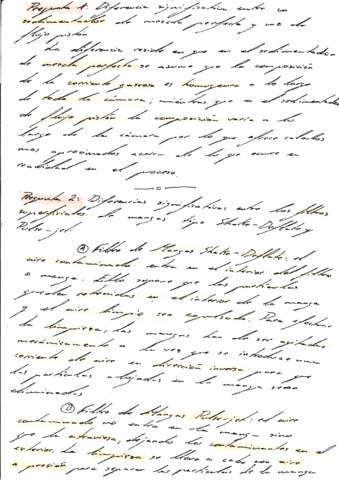 Pregunta 1: Diferencia significativa entre un
sedimentador de mezcla perfecta y uno de
flujo pistón
La diferencia reside en que en el sedimentador
de mezcla perfecta se asume que la composición
de la corriente gaseosa es homogénea a lo largo
de toda la cámara; mientras que en el sedimentador
de flujo pistón la composición varía a lo
largo de la cámara por lo que ofrece cálculos
mas aproximados acerca de lo que ocurre en
realidad en el proceso.
Pregunta 2: Diferencias significativas entre los filtros
superficiales de mangas tipo Shake-Deflate y
Pulse-jet
① Filtro de Mangas Shake-Deflate: el
aire contaminado entra en el interior del filtro
o manga. Ello supone que las partículas
quedan retenidas en el interior de la manga
y el aire limpio sea expulsado. Para efectuar
la limpieza, las mangas han de ser agitadas
mecánicamente a la vez que se introduce una
corriente de aire en dirección inversa para que
las partículas alojadas en la manga sean
eliminadas
② Filtro de Mangas Pulse-jet: el aire
contaminado no entra en la manga sino
que la atraviesa, dejando los contaminantes en el
exterior. La limpieza se lleva a cabo con aire
a presión para separar las partículas de la manga